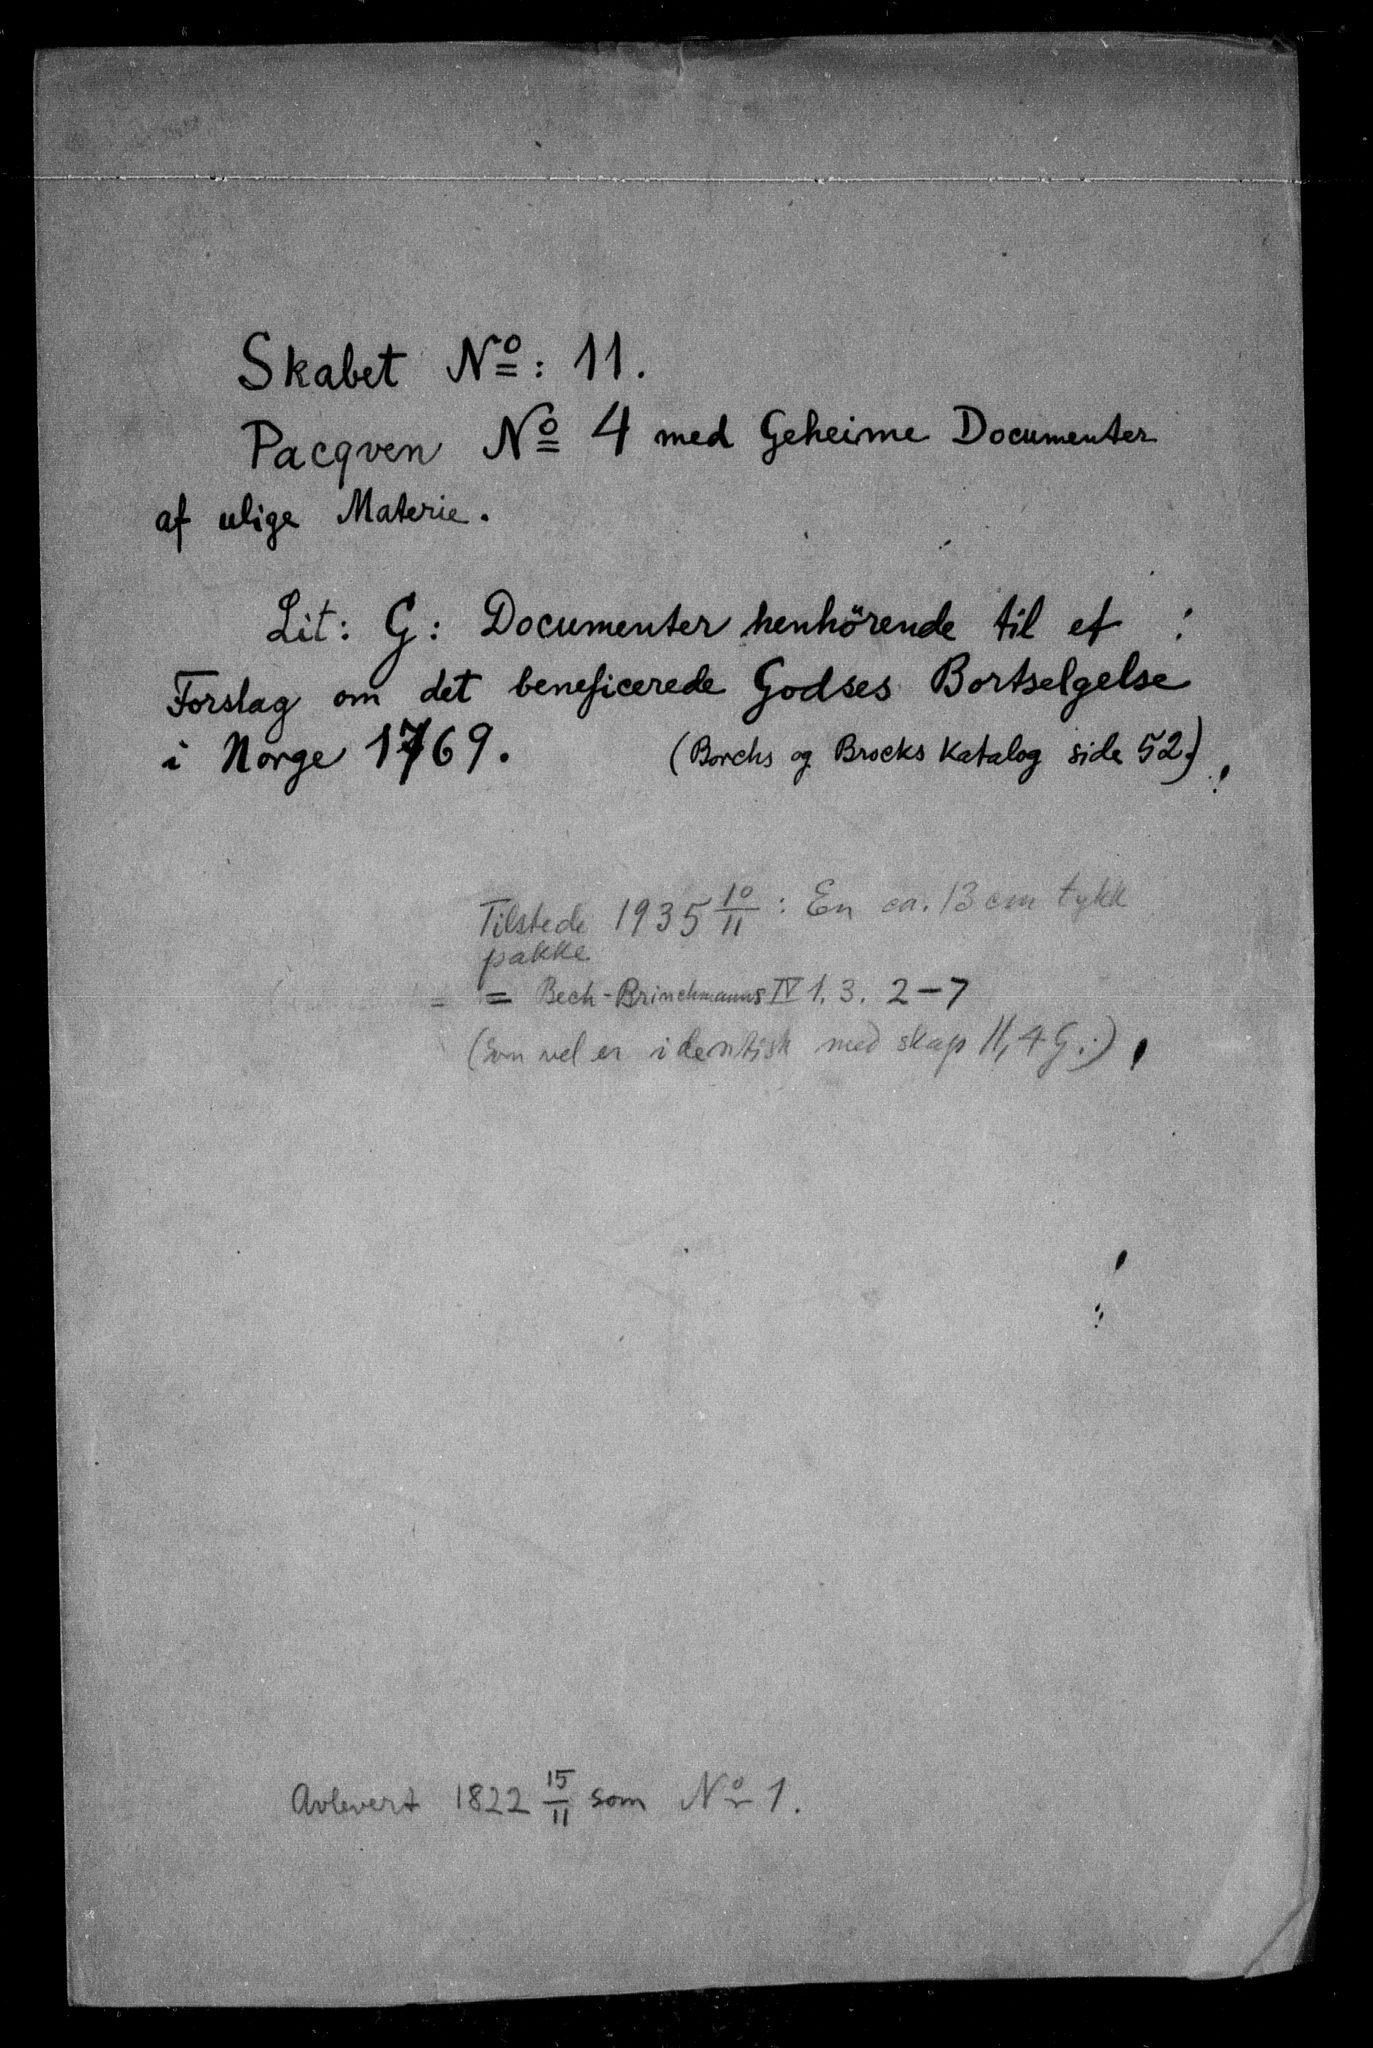 Skabet Nº: 11.
Pacqven Nº 4 med Geheime Documenter
af ulige Materie.
Lit: G: Documenter henhörende til et
Forslag om det beneficerede Godses Bortselgelse
i Norge 1769. (Borchs og Brocks Katalog side 52.)
Tilstede 1935 10/11: En ca. 13 cm tykk
pakke
= Bech-Brinchmanns IV 1. 3. 2-7
(som vel er identisk med skap 11, 4 G.)
Avlevert 1822 15/11 som Nº 1.